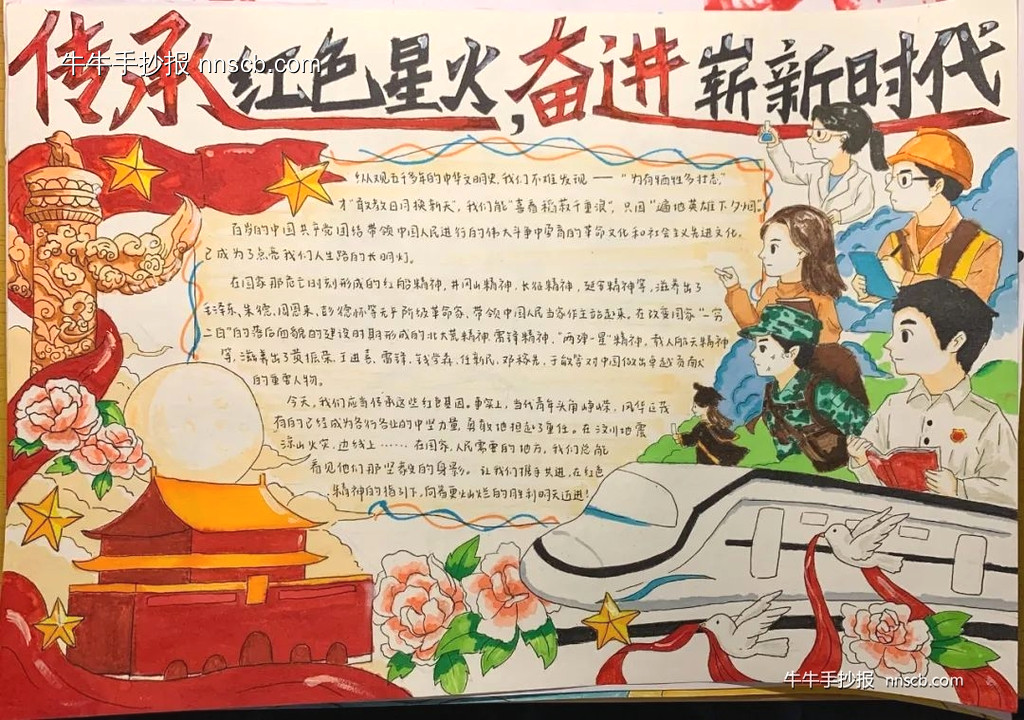 传承红色星火,奋进崭新时代
牛牛手抄报 nnscb.com
纵观五千多年的中华文明史,我们不难发现——“为有牺牲多壮志,
才“敢教日月换新天”,我们能“喜看稻菽千重浪”,只因“遍地英雄下夕烟”。
百岁的中国共产党团结带领中国人民进行的伟大斗争中孕育的革命文化和社会主义先进文化,
已成为了点亮我们人生路的长明灯。
在国家那危亡时刻形成的红船精神,井冈山精神,长征精神,延安精神等,滋养出了
毛泽东,朱德,周恩来,彭德怀等无产阶级革命家,带领中国人民当家作主站起来,在改变国家“一穷
二白”的落后面貌的建设时期形成的北大荒精神,雷锋精神,“两弹一星”精神,载人航天精神
等,滋养出了黄振荣,王进喜,雷锋,钱学森,任新民,邓稼先,于敏等对中国做出卓越贡献
的重要人物。
今天,我们应当传承这些红色基因。事实上,当代青年头角峥嵘,风华正茂
有的已经成为各行各业的中坚力量,勇敢地担起了重任。在汶川地震
凉山火灾,边线上……在国家,人民需要的地方,我们总能
看见他们那坚毅的身影。让我们携手共进,在红色
精神的指引下,向着更灿烂的胜利明天迈进!
牛牛手抄报 nnscb.com